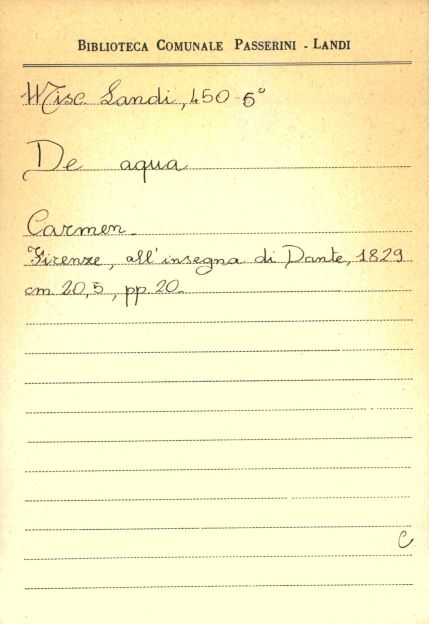 BIBLIOTECA COMUNALE PASSERINI - LANDI
Misc. Landi, 450 - 5°
De aqua
Carmen.
Firenze, all'insegna di Dante, 1829
cm. 20,5, pp. 20.
C